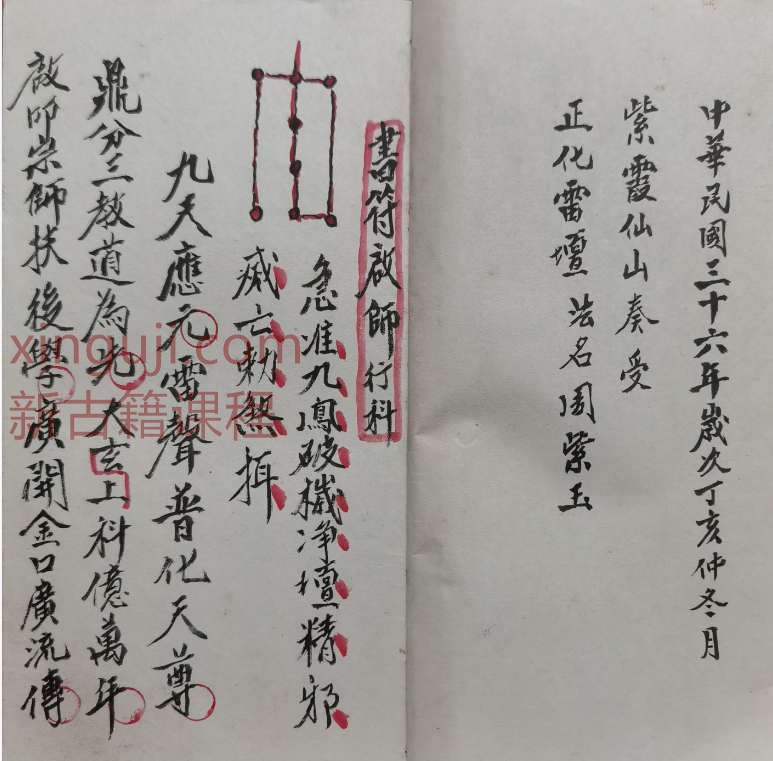 中華民國三十六年歲次丁亥仲冬月
紫霞仙山奏受
正化雷壇 法名周紫玉
書符啟師行科
急准九鳳破穢净壇精邪
滅亡勅煞摄
九天應元雷聲普化天尊
鼎分三教道為先大玄上科億萬年
啟叩宗師扶後學廣開金口廣流傳
xinguji.com
新古籍课程